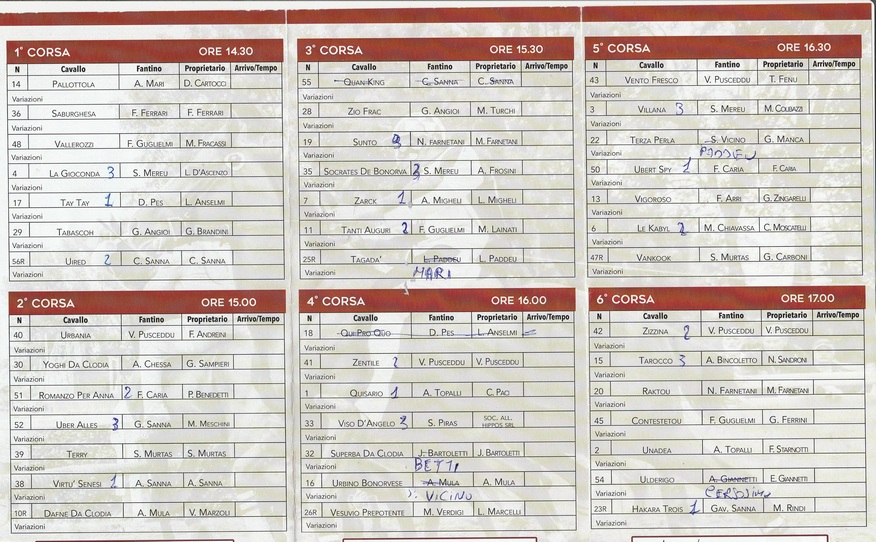 1° CORSA ORE 14.30
N Cavallo Fantino Proprietario Arrivo/Tempo
14 PALLOTTOLA A. MARI D. CARTOCCI
Variazioni
36 SABURGHESA F. FERRARI F. FERRARI
Variazioni
48 VALLEROZZI F. GUGLIELMI M. FRACASSI
Variazioni
4 LA GIOCONDA 3 S. MEREU L. D'ASCENZO
Variazioni
17 TAY TAY 1 D. PES L. ANSELMI
Variazioni
29 TABASCOH G. ANGIOI G. BRANDINI
Variazioni
56R UIRED 2 C. SANNA C. SANNA
Variazioni
2° CORSA ORE 15.00
N Cavallo Fantino Proprietario Arrivo/Tempo
40 URBANIA V. PUSCEDDU F. ANDREINI
Variazioni
30 YOGHI DA CLODIA A. CHESSA G. SAMPIERI
Variazioni
51 ROMANZO PER ANNA 2 F. CARIA P. BENEDETTI
Variazioni
52 UBER ALLES 3 G. SANNA M. MESCHINI
Variazioni
39 TERRY S. MURTAS S. MURTAS
Variazioni
38 VIRTU' SENESI 1 A. SANNA A. SANNA
Variazioni
10R DAFNE DA CLODIA A. MULA V. MARZOLI
Variazioni
3° CORSA ORE 15.30
N Cavallo Fantino Proprietario Arrivo/Tempo
55 QUAN KING C. SANNA C. SANNA
Variazioni
28 ZIO FRAC G. ANGIOI M. TURCHI
Variazioni
19 SUNTO N. FARNETANI M. FARNETANI
Variazioni
35 SOCRATES DE BONORVA 3 S. MEREU A. FROSINI
Variazioni
7 ZARCK 1 A. MIGHELI L. MIGHELI
Variazioni
11 TANTI AUGURI 2 F. GUGLIELMI M. LAINATI
Variazioni
25R TAGADA' L. PADDEU L. PADDEU
Variazioni MARI
4° CORSA ORE 16.00
N Cavallo Fantino Proprietario Arrivo/Tempo
18 QUI PRO QUO D. PES L. ANSELMI
Variazioni
41 ZENTILE 2 V. PUSCEDDU V. PUSCEDDU
Variazioni
1 QUISARIO 1 A. TOPALLI C. PACI
Variazioni
33 VISO D'ANGELO 3 S. PIRAS SOC. ALL. HIPPOS SRL
Variazioni
32 SUPERBA DA CLODIA J. BARTOLETTI J. BARTOLETTI
Variazioni BETTI
16 URBINO BONORVESE A. MULA A. MULA
Variazioni S. VICINO
26R VESUVIO PREPOTENTE M. VERDIGI L. MARCELLI
Variazioni
5° CORSA ORE 16.30
N Cavallo Fantino Proprietario Arrivo/Tempo
43 VENTO FRESCO V. PUSCEDDU T. FENU
Variazioni
3 VILLANA 3 S. MEREU M. COLIBAZZI
Variazioni
22 TERZA PERLA S. VICINO G. MANCA
Variazioni PADDEU
50 UBERT SPY 1 F. CARIA F. CARIA
Variazioni
13 VIGOROSO F. ARRI G. ZINGARELLI
Variazioni
6 LE KABYL 2 M. CHIAVASSA C. MOSCATELLI
Variazioni
47R VANKOOK S. MURTAS G. CARBONI
Variazioni
6° CORSA ORE 17.00
N Cavallo Fantino Proprietario Arrivo/Tempo
42 ZIZZINA 2 V. PUSCEDDU V. PUSCEDDU
Variazioni
15 TAROCCO 3 A. BINCOLETTO N. SANDRONI
Variazioni
20 RAKTOU N. FARNETANI M. FARNETANI
Variazioni
45 CONTESTETOU F. GUGLIELMI G. FERRINI
Variazioni
2 UNADEA A. TOPALLI F. STARNOTTI
Variazioni
54 ULDERIGO A. GIANNETTI E. GIANNETTI
Variazioni
23R HAKARA TROIS 1 GAV. SANNA M. RINDI
Variazioni